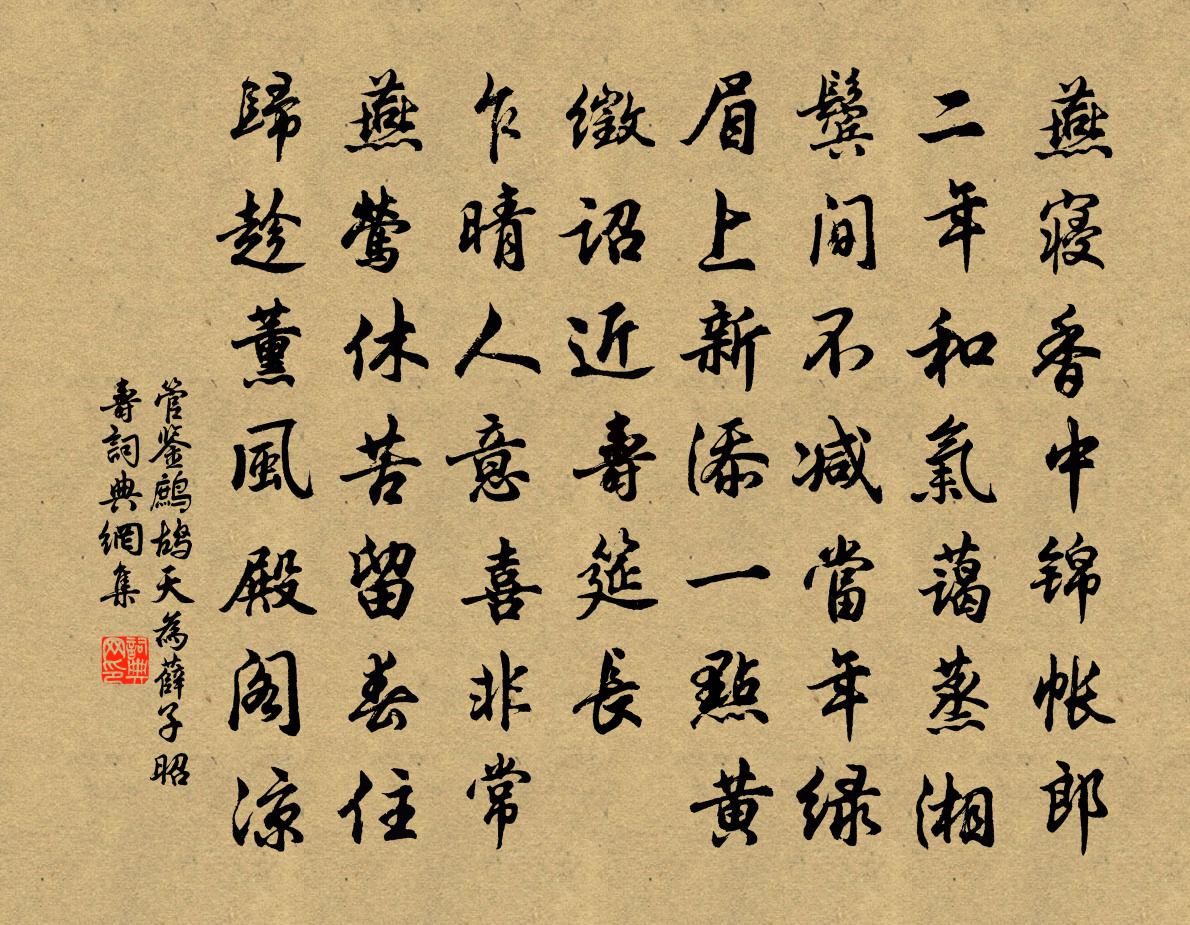 燕寝香中锦帐郎
二年和氣蔼蒸湘
鬓间不减當年绿
眉上新添一點黄
徵诏近壽筵長
乍晴人意喜非常
燕莺休苦留春住
歸趁薰風殿阁凉
管鉴鹧鸪天為薛子昭
壽詞典網集
詞典网印